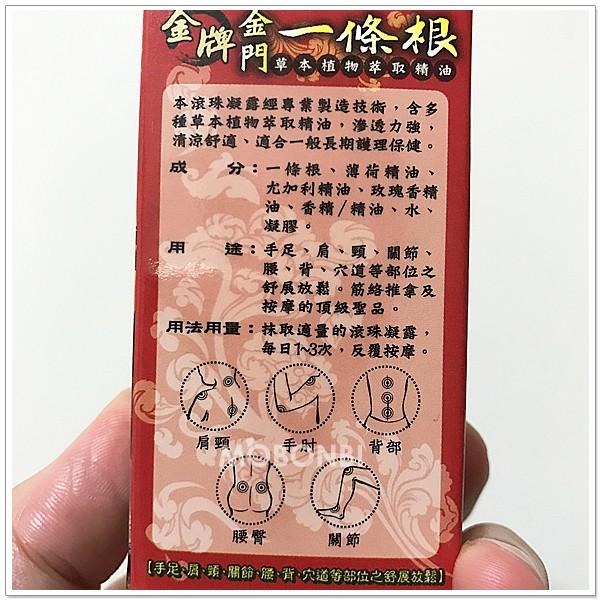 金牌金門一條根
草本植物萃取精油
本滾珠凝露經專業製造技術，含多
種草本植物萃取精油，滲透力強，
清涼舒適、適合一般長期護理保健。
成　　分：一條根、薄荷精油、
尤加利精油、玫瑰香精
油、香精/精油、水、
凝膠。
用　　途：手足、肩、頸、關節、
腰、背、穴道等部位之
舒展放鬆。筋絡推拿及
按摩的頂級聖品。
用法用量：抹取適量的滾珠凝露，
每日1~3次，反覆按摩。
肩頸　手肘　背部
MOBONBI
腰臀　關節
【手足、肩、頸、關節、腰、背、穴道等部位之舒展放鬆】